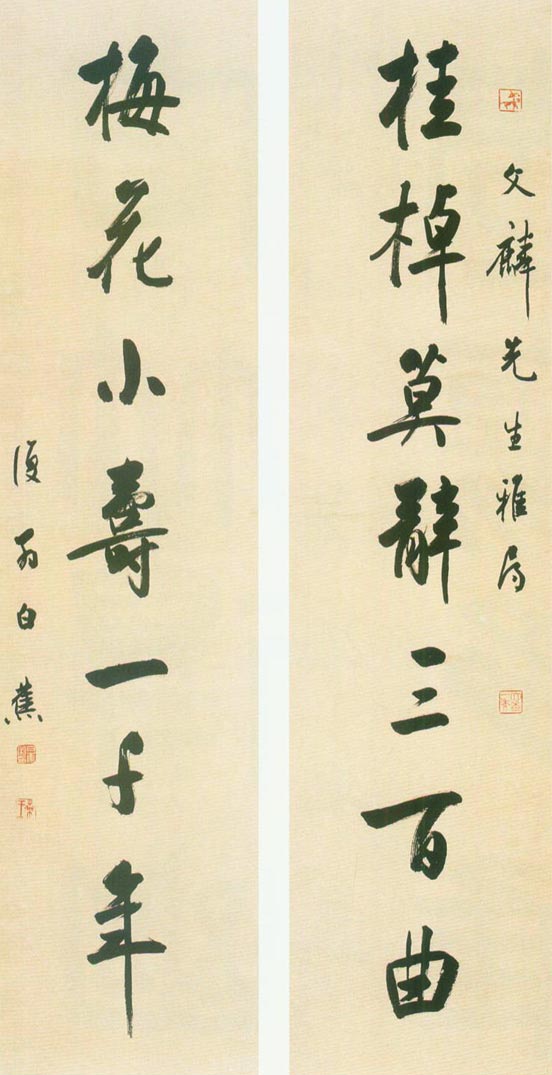 文麟先生雅属
桂棹莫辭三百曲
梅花小壽一千年
復翁白蕉